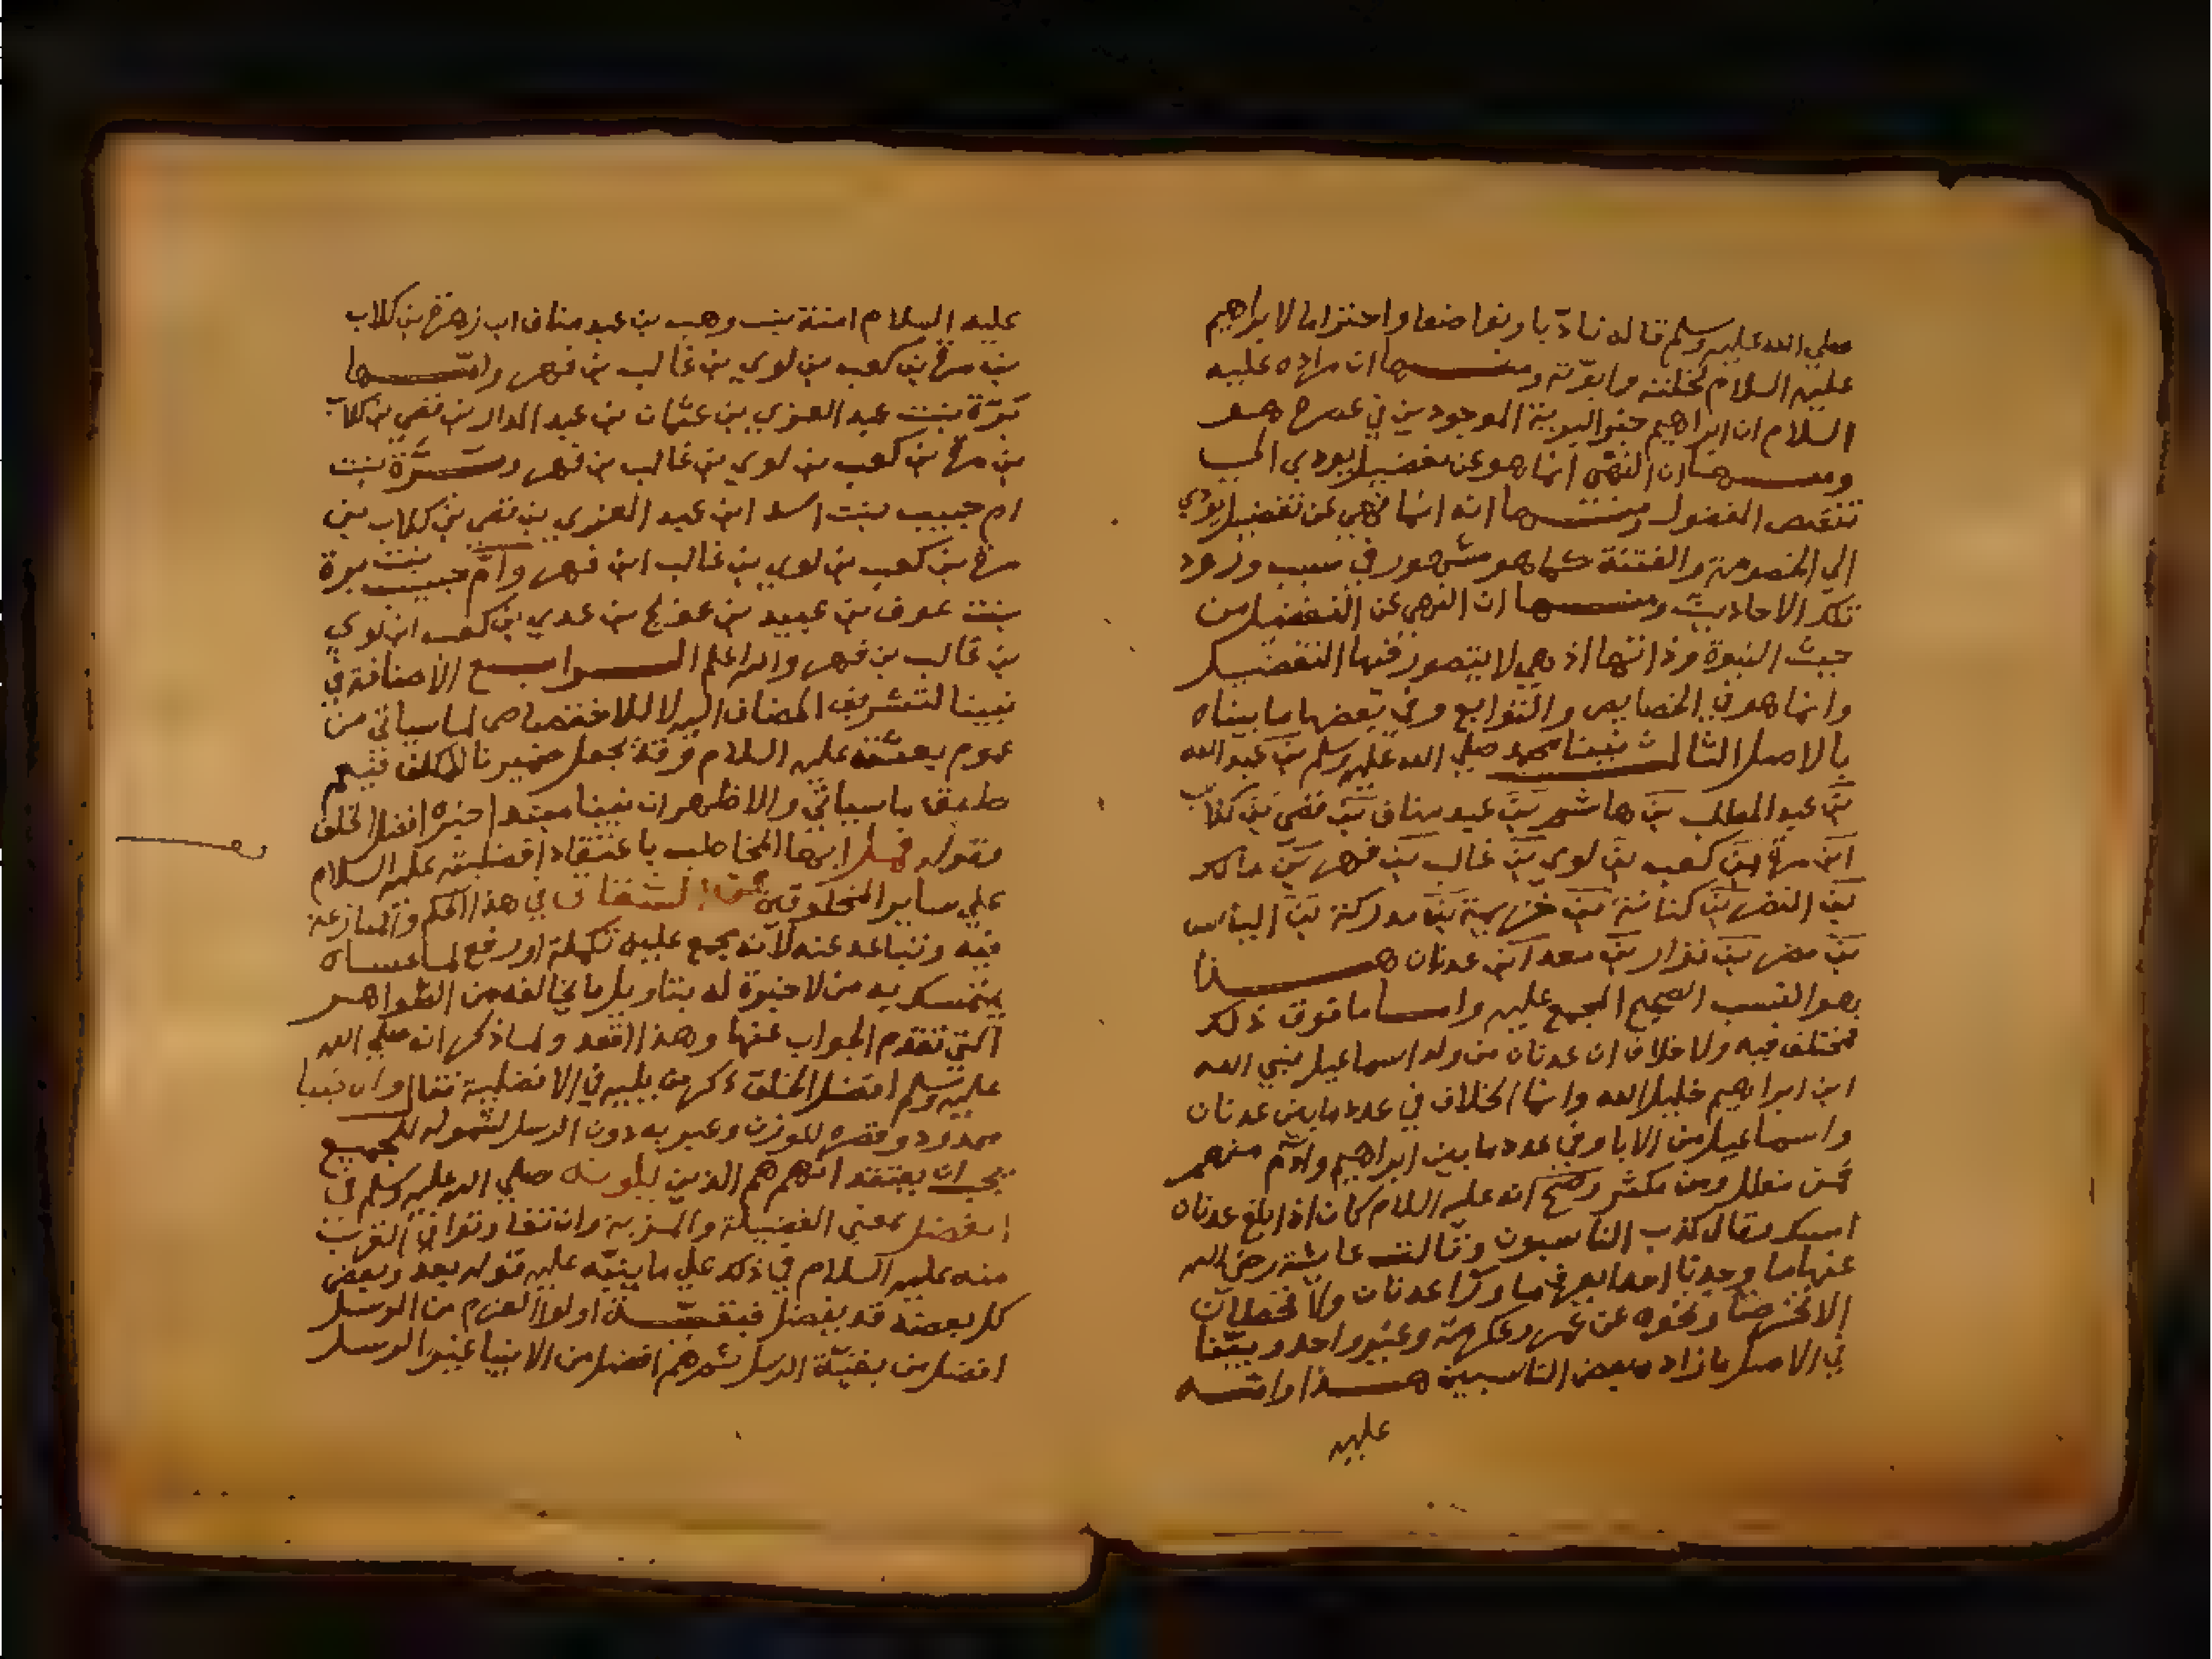 صلي الله عليه وسلم قاله تادّبا وتواضعا واحتراما لابراهيم
عليه السلام لخلته وابوّته ومنها ان مراده عليه
السلام ان ابراهيم خير البرية الموجودين في عصره
ومنها ان النهي انما هو عن تفضيل يودي الي
تنقص المفضول ومنها انه انما نهي عن تفضيل يودي
الي الخصومة والفتنة كما هو مشهور في سبب ورود
تلك الاحاديث ومنها ان النهي عن التفضيل من
حيث النبوة وذاتها اذ هي لا يتصور فيها التفضيل
وانما هو في الخصايص والتوابع وفي بعضها ما بيناه
بالاصل الثالث نبينا محمد صلي الله عليه وسلم بن عبد الله
بن عبد المطلب بن هاشم بن عبد مناف بن قصي بن كلاب
ابن مرة بن كعب بن لوي بن غالب بن فهر بن مالك
بن النضر بن كنانة بن خزيمة بن مدركة بن الياس
بن مضر بن نزار بن معد ابن عدنان هذا
هو النسب الصحيح المجمع عليه واما ما فوق ذلك
فمختلف فيه ولا خلاف ان عدنان من ولد اسماعيل نبي الله
ابن ابراهيم خليل الله وانما الخلاف في عدد ما بين عدنان
واسماعيل من الابا وفي عدد ما بين ابراهيم وادم منهم
فمن مقلل ومن مكثر وصح انه عليه السلام كان اذا بلغ عدنان
امسك وقال كذب النسابون وقالت عايشة رضي الله
عنها ما وجدنا احدا يعرف ما ورا عدنان ولا قحطان
الا تخرصا ونحوه عن عمر وعكرمة وغير واحد وبيّنا
في الاصل ما زاد بعض الناسبين هذا وامه
عليه
عليه السلام امنة بنت وهب بن عبد مناف ابن زهرة بن كلاب
بن مرة بن كعب بن لوي بن غالب بن فهر وامّها
برّة بنت عبد العزي بن عثمان بن عبد الدار بن قصي بن كلاب
بن مرة بن كعب بن لوي بن غالب بن فهر وبرّة بنت
ام حبيب بنت اسد ابن عبد العزي بن قصي بن كلاب بن
مرة بن كعب بن لوي بن غالب ابن فهر وامّ حبيب بنت برة
بنت عوف بن عبيد بن عويج بن عدي بن كعب ابن لوي
بن غالب بن فهر والله اعلم الرابع الاضافة في
نبينا لتشريف المضاف اليه لا للاختصاص لما سياتي من
عموم بعثته عليه السلام وقد يجعل ضمير نا للمكلف فيعم
طبق ما سياتي والاظهر ان نبينا مبتدا خبره افضل الخلق
وقوله فمل ايها المخاطب باعتقاد افضليته عليه السلام
علي ساير المخلوقين عن الشقاق في هذا الحكم والمنازعة
فيه وتباعد عنه لانه مجمع عليه تكملة او رفع لما عساه
يتمسك به من لا خبرة له بتاويل ما يخالفه من الظواهر
التي تقدم الجواب عنها وهذا القعد ولما ذكر انه صلي الله
عليه وسلم افضل الخلق ذكر من يليه في الافضلية فقال وان نبيا
ممدود وقصره للوزن وعبر به دون الرسل لشموله للجميع
يجب ان يعتقد انهم هم الذين يلونه صلي الله عليه وسلم في
الفضل بمعني الفضيلة والمزية وان تفاوتوا في القرب
منه عليه السلام في ذلك علي ما ينبّه عليه قوله بعد وبعض
كل بعضه قد يفضل فبقيّة اولوا العزم من الرسل
افضل من بقيّة الرسل ثم هم افضل من الانبيا غير الرسل